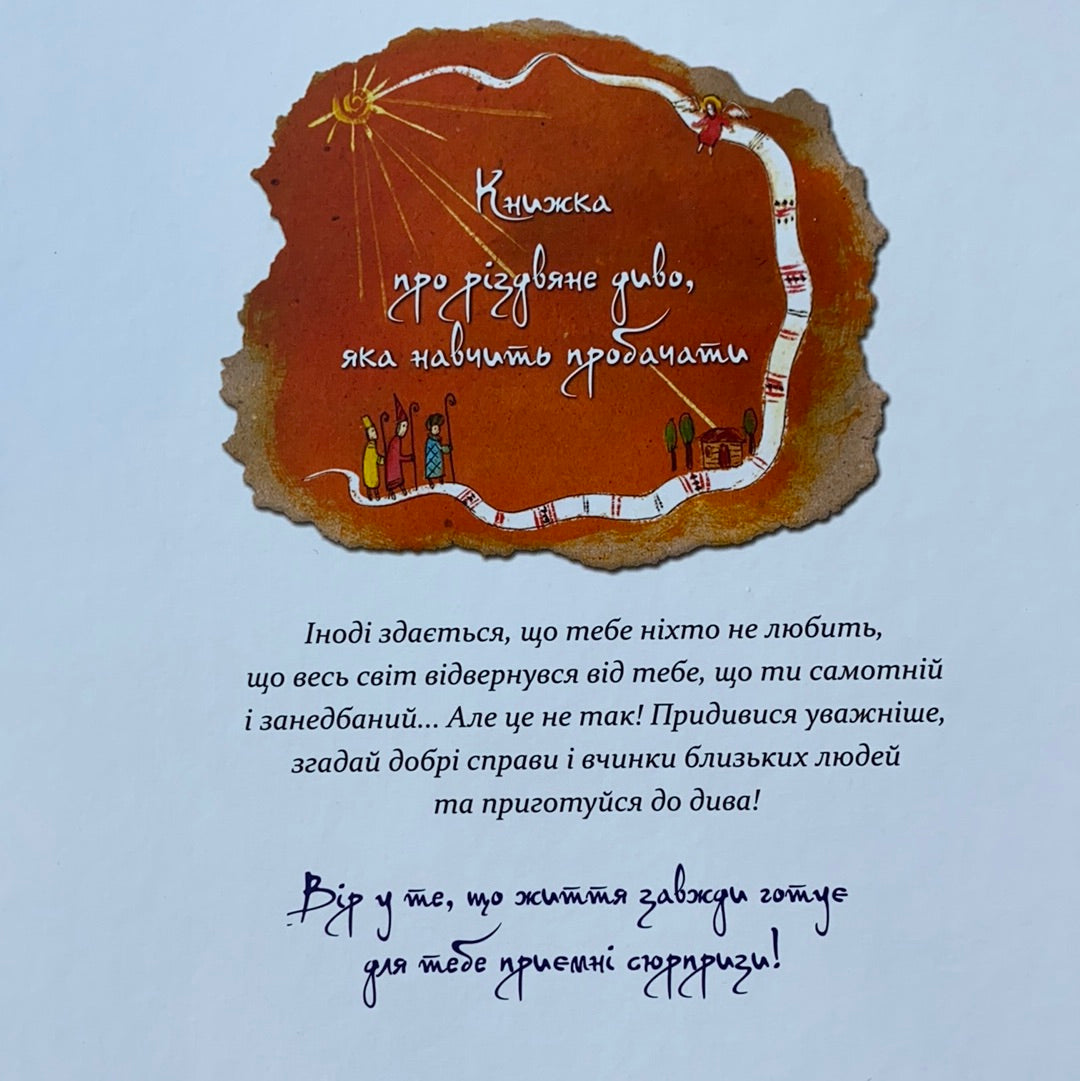 Книжка
про різдвяне диво,
яка навчить пробачати
Іноді здається, що тебе ніхто не любить,
що весь світ відвернувся від тебе, що ти самотній
і занедбаний... Але це не так! Придивися уважніше,
згадай добрі справи і вчинки близьких людей
та приготуйся до дива!
Вір у те, що життя завжди готує
для тебе приємні сюрпризи!